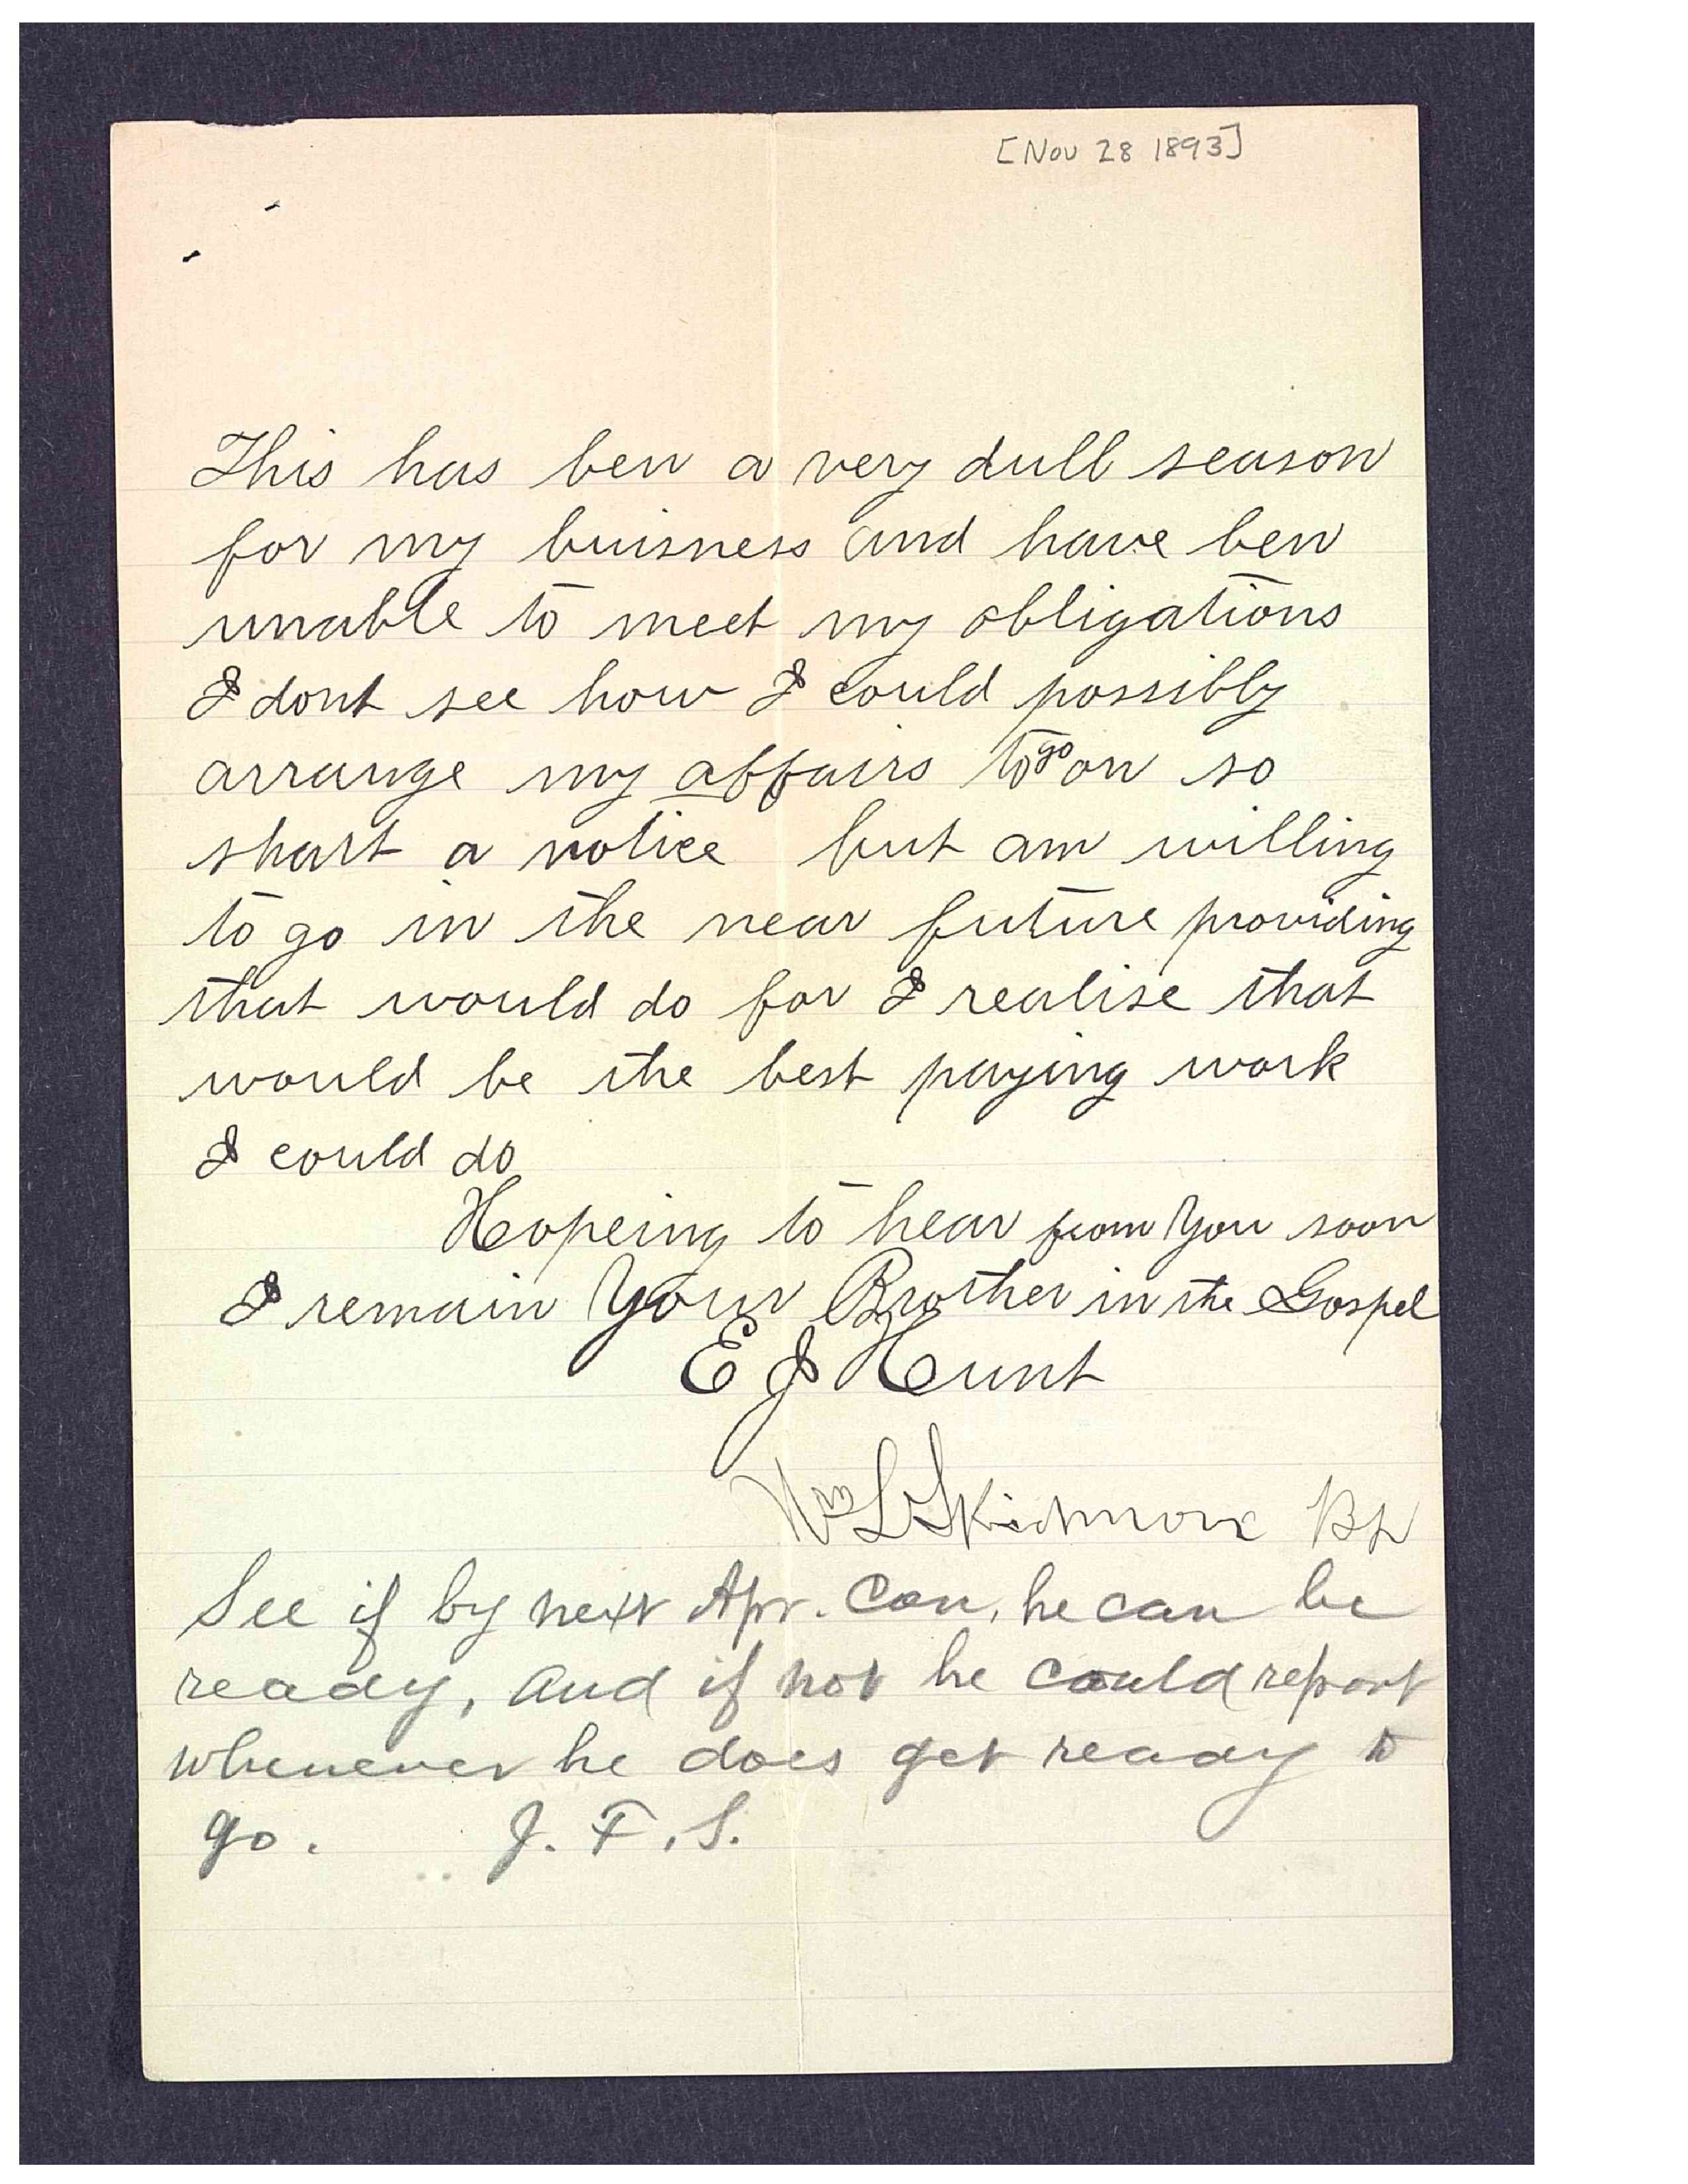 [Nov 28 1893]
This has ben a very dull season
for my buisness and have ben
unable to meet my obligations
I dont see how I could possibly
arrange my affairs to go on so
short a notice but am willing
to go in the near future providing
that would do for I realise that
would be the best paying work
I could do
Hopeing to hear from You soon
I remain Your Brother in the Gospel
E J Hunt
Wm L Skidmore Bp
See if by next Apr. Con, he can be
ready, and if not he could report
whenever he does get ready to
go. J. F. S.